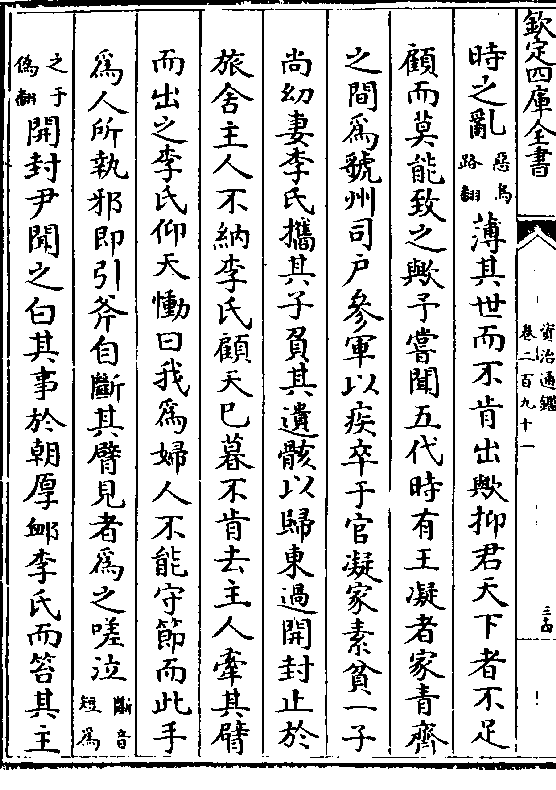 欽定四庫全書
資治通鑑
卷二百九十一
三西
時之亂惡烏路翻薄其世而不肯出歟抑君天下者不足
顧而莫能致之歟予嘗聞五代時有王凝者家青齊
之間為虢州司戶參軍以疾卒于官凝家素貧一子
尚幼妻李氏攜其子負其遺骸以歸東過開封止於
旅舍主人不納李氏顧天已暮不肯去主人牽其臂
而出之李氏仰天慟曰我為婦人不能守節而此手
為人所執邪即引斧自斷其臂見者為之嗟泣斷音短為
之于偽翻開封尹聞之白其事於朝厚䘏李氏而笞其主